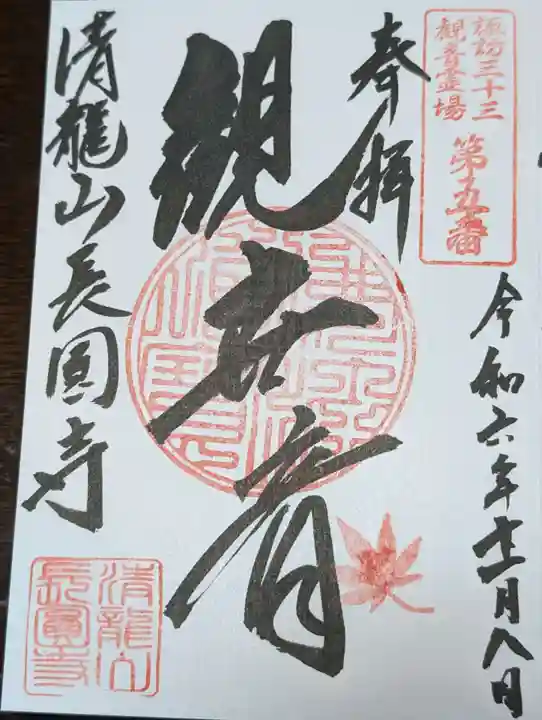 諏訪三十三
観音霊場
第五番
令和六年十一月八日
奉拝
観世音
清龍山長圓寺
清龍山
長圓寺